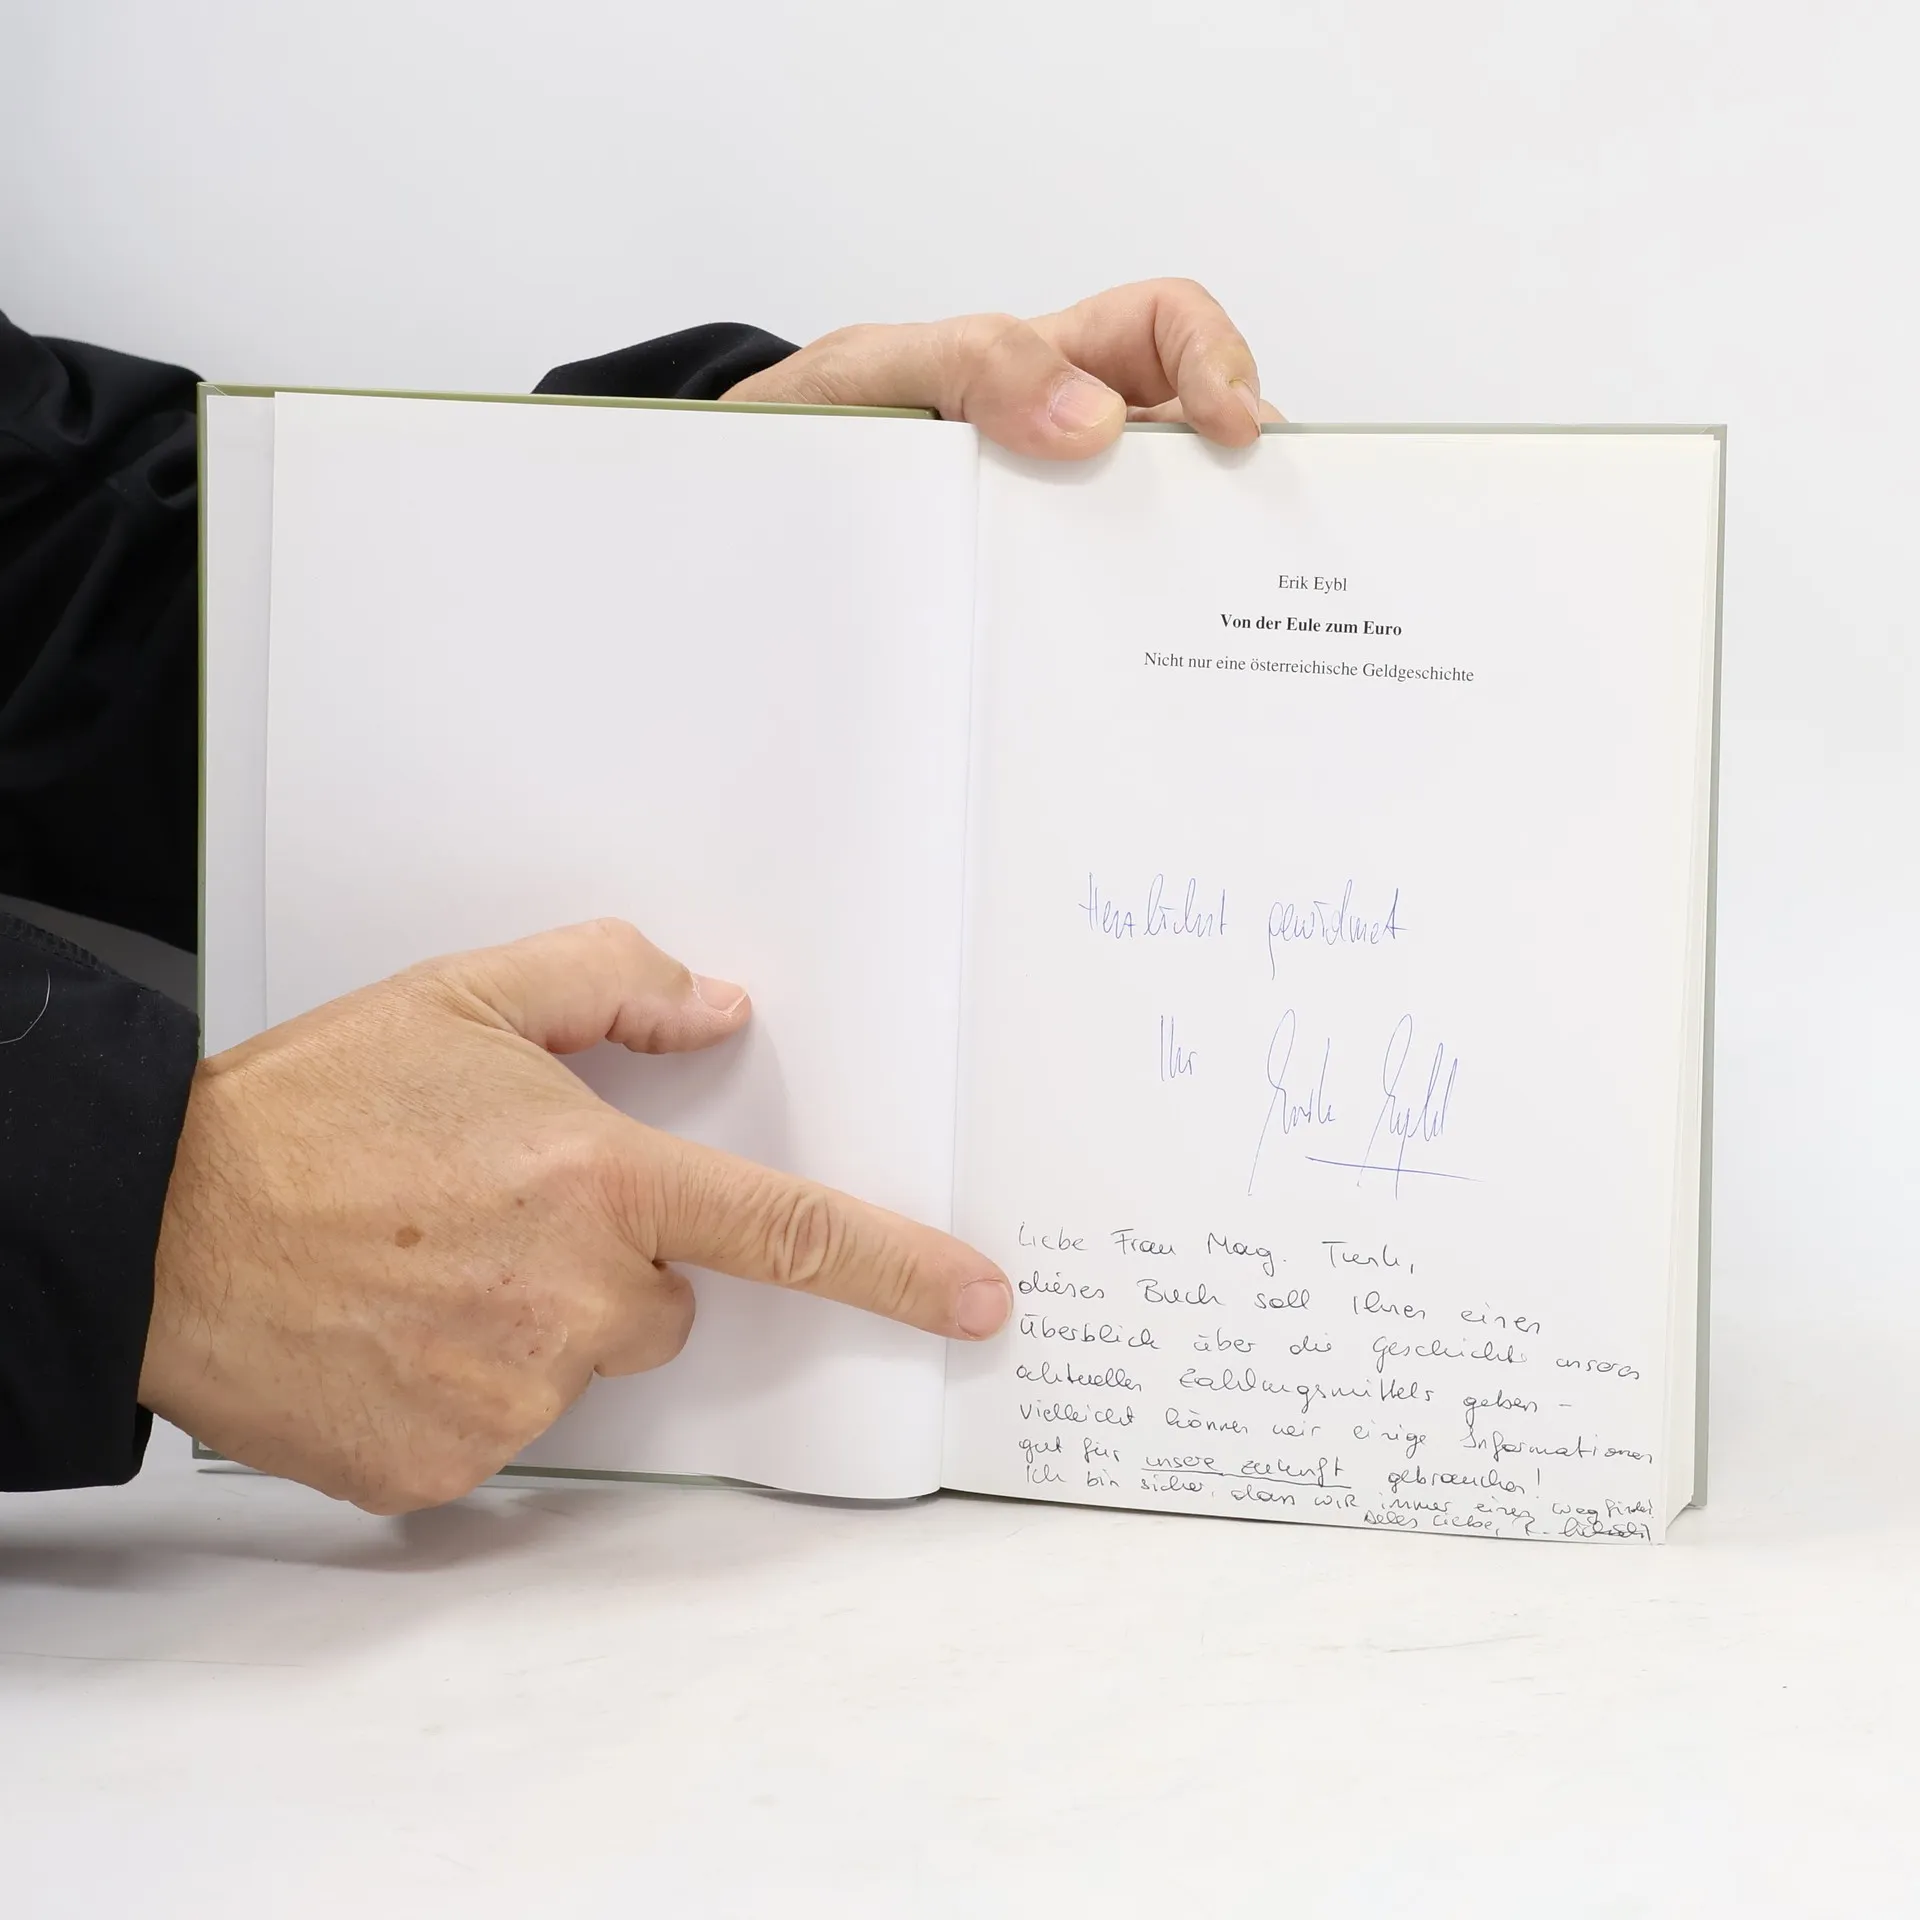 Erik Eybl
Von der Eule zum Euro
Nicht nur eine österreichische Geldgeschichte
Herzlichst gewidmet
Ihr Erik Eybl
Liebe Frau Mag.
dieses Buch soll Ihnen einen
Überblick über die Geschichte unseres
aktuellen Zahlungsmittels geben –
vielleicht können wir einige Informationen
gut für unsere Zukunft gebrauchen!
Ich bin sicher, dass wir immer einen Weg finden.
Alles Liebe,